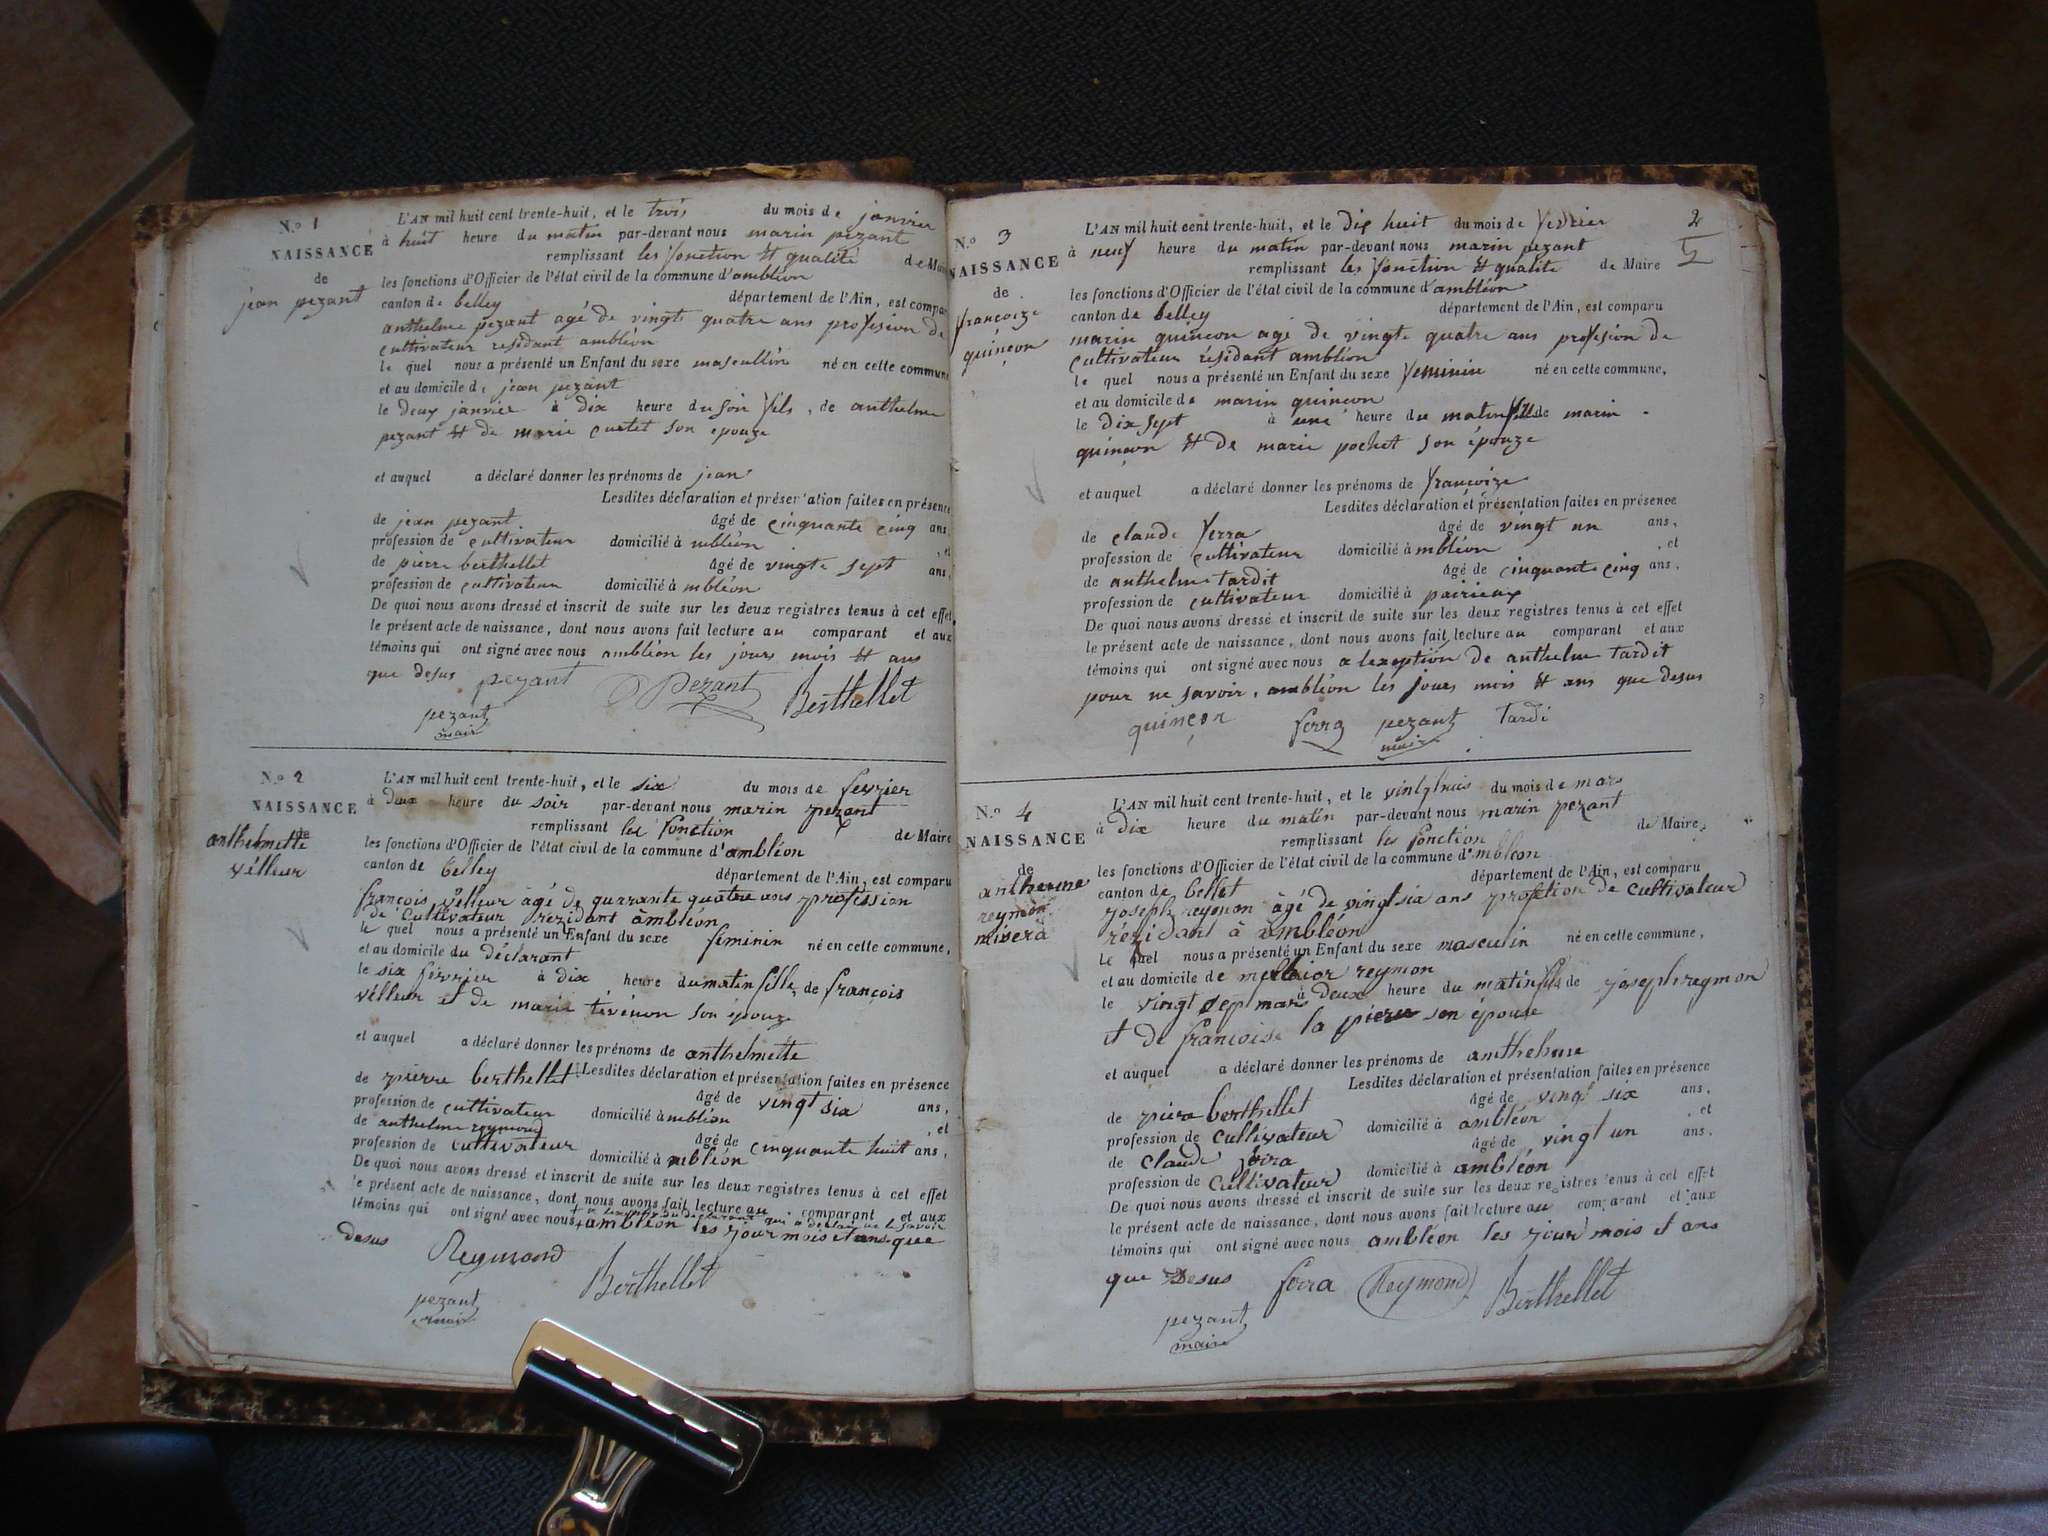 N.º 1
NAISSANCE
de
jean pezant
L'AN mil huit cent trente-huit, et le trois du mois de janvier
à huit heure du matin par-devant nous marin pezant
remplissant les fonction et qualite de Maire
les fonctions d'Officier de l'état civil de la commune d'ambléon
canton de belley département de l'Ain, est comparu
anthelme pezant agé de vingts quatre ans profision de
cultivateur residant ambléon
le quel nous a présenté un Enfant du sexe mascullin né en cette commune
et au domicile de jean pezant
le deux janvier à dix heure du soir fils, de anthelme
pezant et de marie curtet son epouze
et auquel a déclaré donner les prénoms de jean
Lesdites déclaration et présentation faites en présence
de jean pezant âgé de cinquante cinq ans
profession de cultivateur domicilié à mbléon , et
de pierre berthellet âgé de vingte sept ans,
profession de cultivateur domicilié à mbléon
De quoi nous avons dressé et inscrit de suite sur les deux registres tenus à cet effet,
le présent acte de naissance, dont nous avons fait lecture au comparant et aux
témoins qui ont signé avec nous ambléon les jours mois et ans
que desus pezant Pezant Berthellet
pezant
mair
N.º 2
NAISSANCE
de
anthelmette
vélleur
L'AN mil huit cent trente-huit, et le six du mois de fevrier
à deux heure du soir par-devant nous marin pezant
remplissant les fonction de Maire
les fonctions d'Officier de l'état civil de la commune d'ambléon
canton de belley département de l'Ain, est comparu
françois vélleur âgé de quarante quatre ans profession
de cultivateur rezidant àmbléon
le quel nous a présenté un Enfant du sexe feminin né en cette commune,
et au domicile du déclarant
le six février à dix heure du matin fille, de françois
vélleur et de marie tévénon son épouze
et auquel a déclaré donner les prénoms de anthelmette
Lesdites déclaration et présentation faites en présence
de pierre berthellet âgé de vingt six ans,
profession de cultivateur domicilié à mbléon , et
de anthelme reymond âgé de cinquante huit ans,
profession de cultivateur domicilié à mbléon
De quoi nous avons dressé et inscrit de suite sur les deux registres tenus à cet effet
le présent acte de naissance, dont nous avons fait lecture au comparant et aux
témoins qui ont signé avec nous ambléon les jour mois et ans que
desus Reymond Berthellet
pezant
mair
2
N.º 3
NAISSANCE
de
françoize
quinçon
L'AN mil huit cent trente-huit, et le dix huit du mois de fevrier
à neuf heure du matin par-devant nous marin pezant
remplissant les fonction et qualite de Maire
les fonctions d'Officier de l'état civil de la commune d'ambléon
canton de belley département de l'Ain, est comparu
marin quincon agé de vingte quatre ans profision de
cultivateur résidant ambléon
le quel nous a présenté un Enfant du sexe feminin né en cette commune,
et au domicile de marin quinçon
le dix sept à une heure du matin fille de marin
quinçon et de marie pochet son épouze
et auquel a déclaré donner les prénoms de françoize
Lesdites déclaration et présentation faites en présence
de claude ferra âgé de vingt un ans,
profession de cultivateur domicilié à mbléon , et
de anthelme tardit âgé de cinquante cinq ans,
profession de cultivateur domicilié à pairieux
De quoi nous avons dressé et inscrit de suite sur les deux registres tenus à cet effet
le présent acte de naissance, dont nous avons fait lecture au comparant et aux
témoins qui ont signé avec nous a lexeption de anthelme tardit
pour ne savoir, ambléon les jours mois et ans que desus
quinçon ferra pezant tardi
mair
N.º 4
NAISSANCE
de
anthelme
reymon
L'AN mil huit cent trente-huit, et le du mois de mars
à dix heure du matin par-devant nous marin pezant
remplissant les fonction de Maire
les fonctions d'Officier de l'état civil de la commune d'mbléon
canton de bellet département de l'Ain, est comparu
joseph reymon âgé de vingt six ans profetion de cultivateur
rézidant à ambléon
le quel nous a présenté un Enfant du sexe masculin né en cette commune,
et au domicile de melkior reymon
le vingt sep mars à deux heure du matin fils de joseph reymon
et de françoise la pierre son épouse
et auquel a déclaré donner les prénoms de anthelme
Lesdites déclaration et présentation faites en présence
de piere berthellet âgé de vingt six ans,
profession de cultivateur domicilié à ambléon , et
de claude ferra âgé de vingt un ans,
profession de cultivateur domicilié à ambléon
De quoi nous avons dressé et inscrit de suite sur les deux registres tenus à cet effet
le présent acte de naissance, dont nous avons fait lecture au comparant et aux
témoins qui ont signé avec nous ambléon les jour mois et ans
que desus ferra Reymond Berthellet
pezant
maire